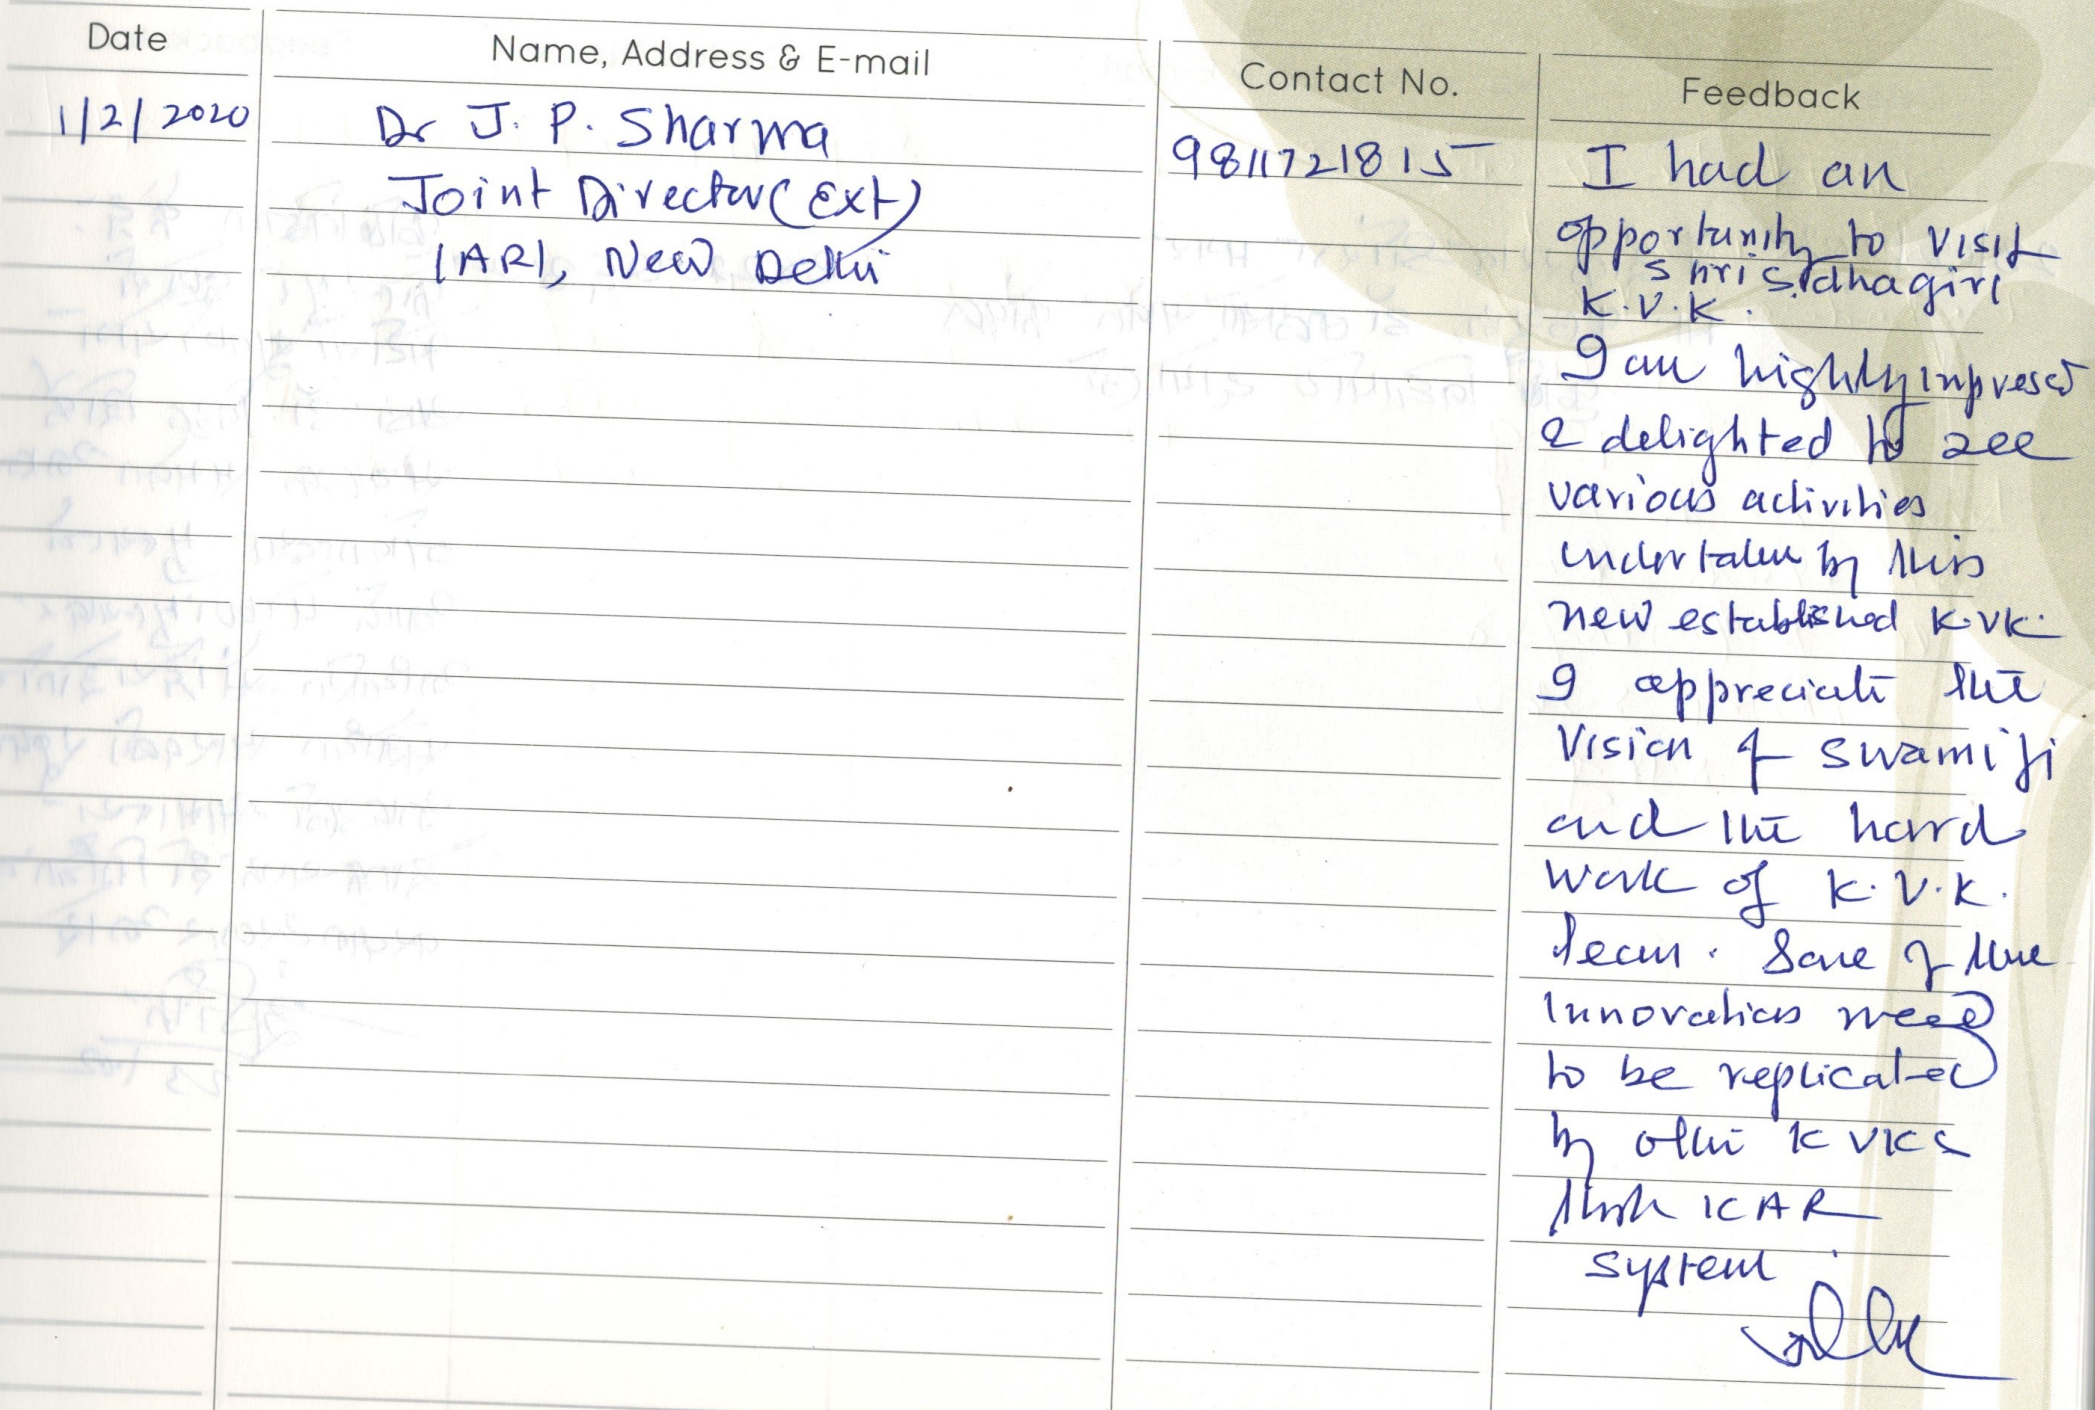 Date Name, Address & E-mail Contact No. Feedback
1/2/2020
Dr J. P. Sharma
Joint Director (Ext)
IARI, New Delhi
9811721815
I had an
opportunity to visit
Shri Sidhagiri
K.V.K.
I am highly impressed
& delighted to see
various activities
undertaken by this
new established K.VK.
I appreciate the
Vision of swamiji
and the hard
work of K.V.K.
team. Some of the
Innovations need
to be replicated
by other KVKs
ICAR
system